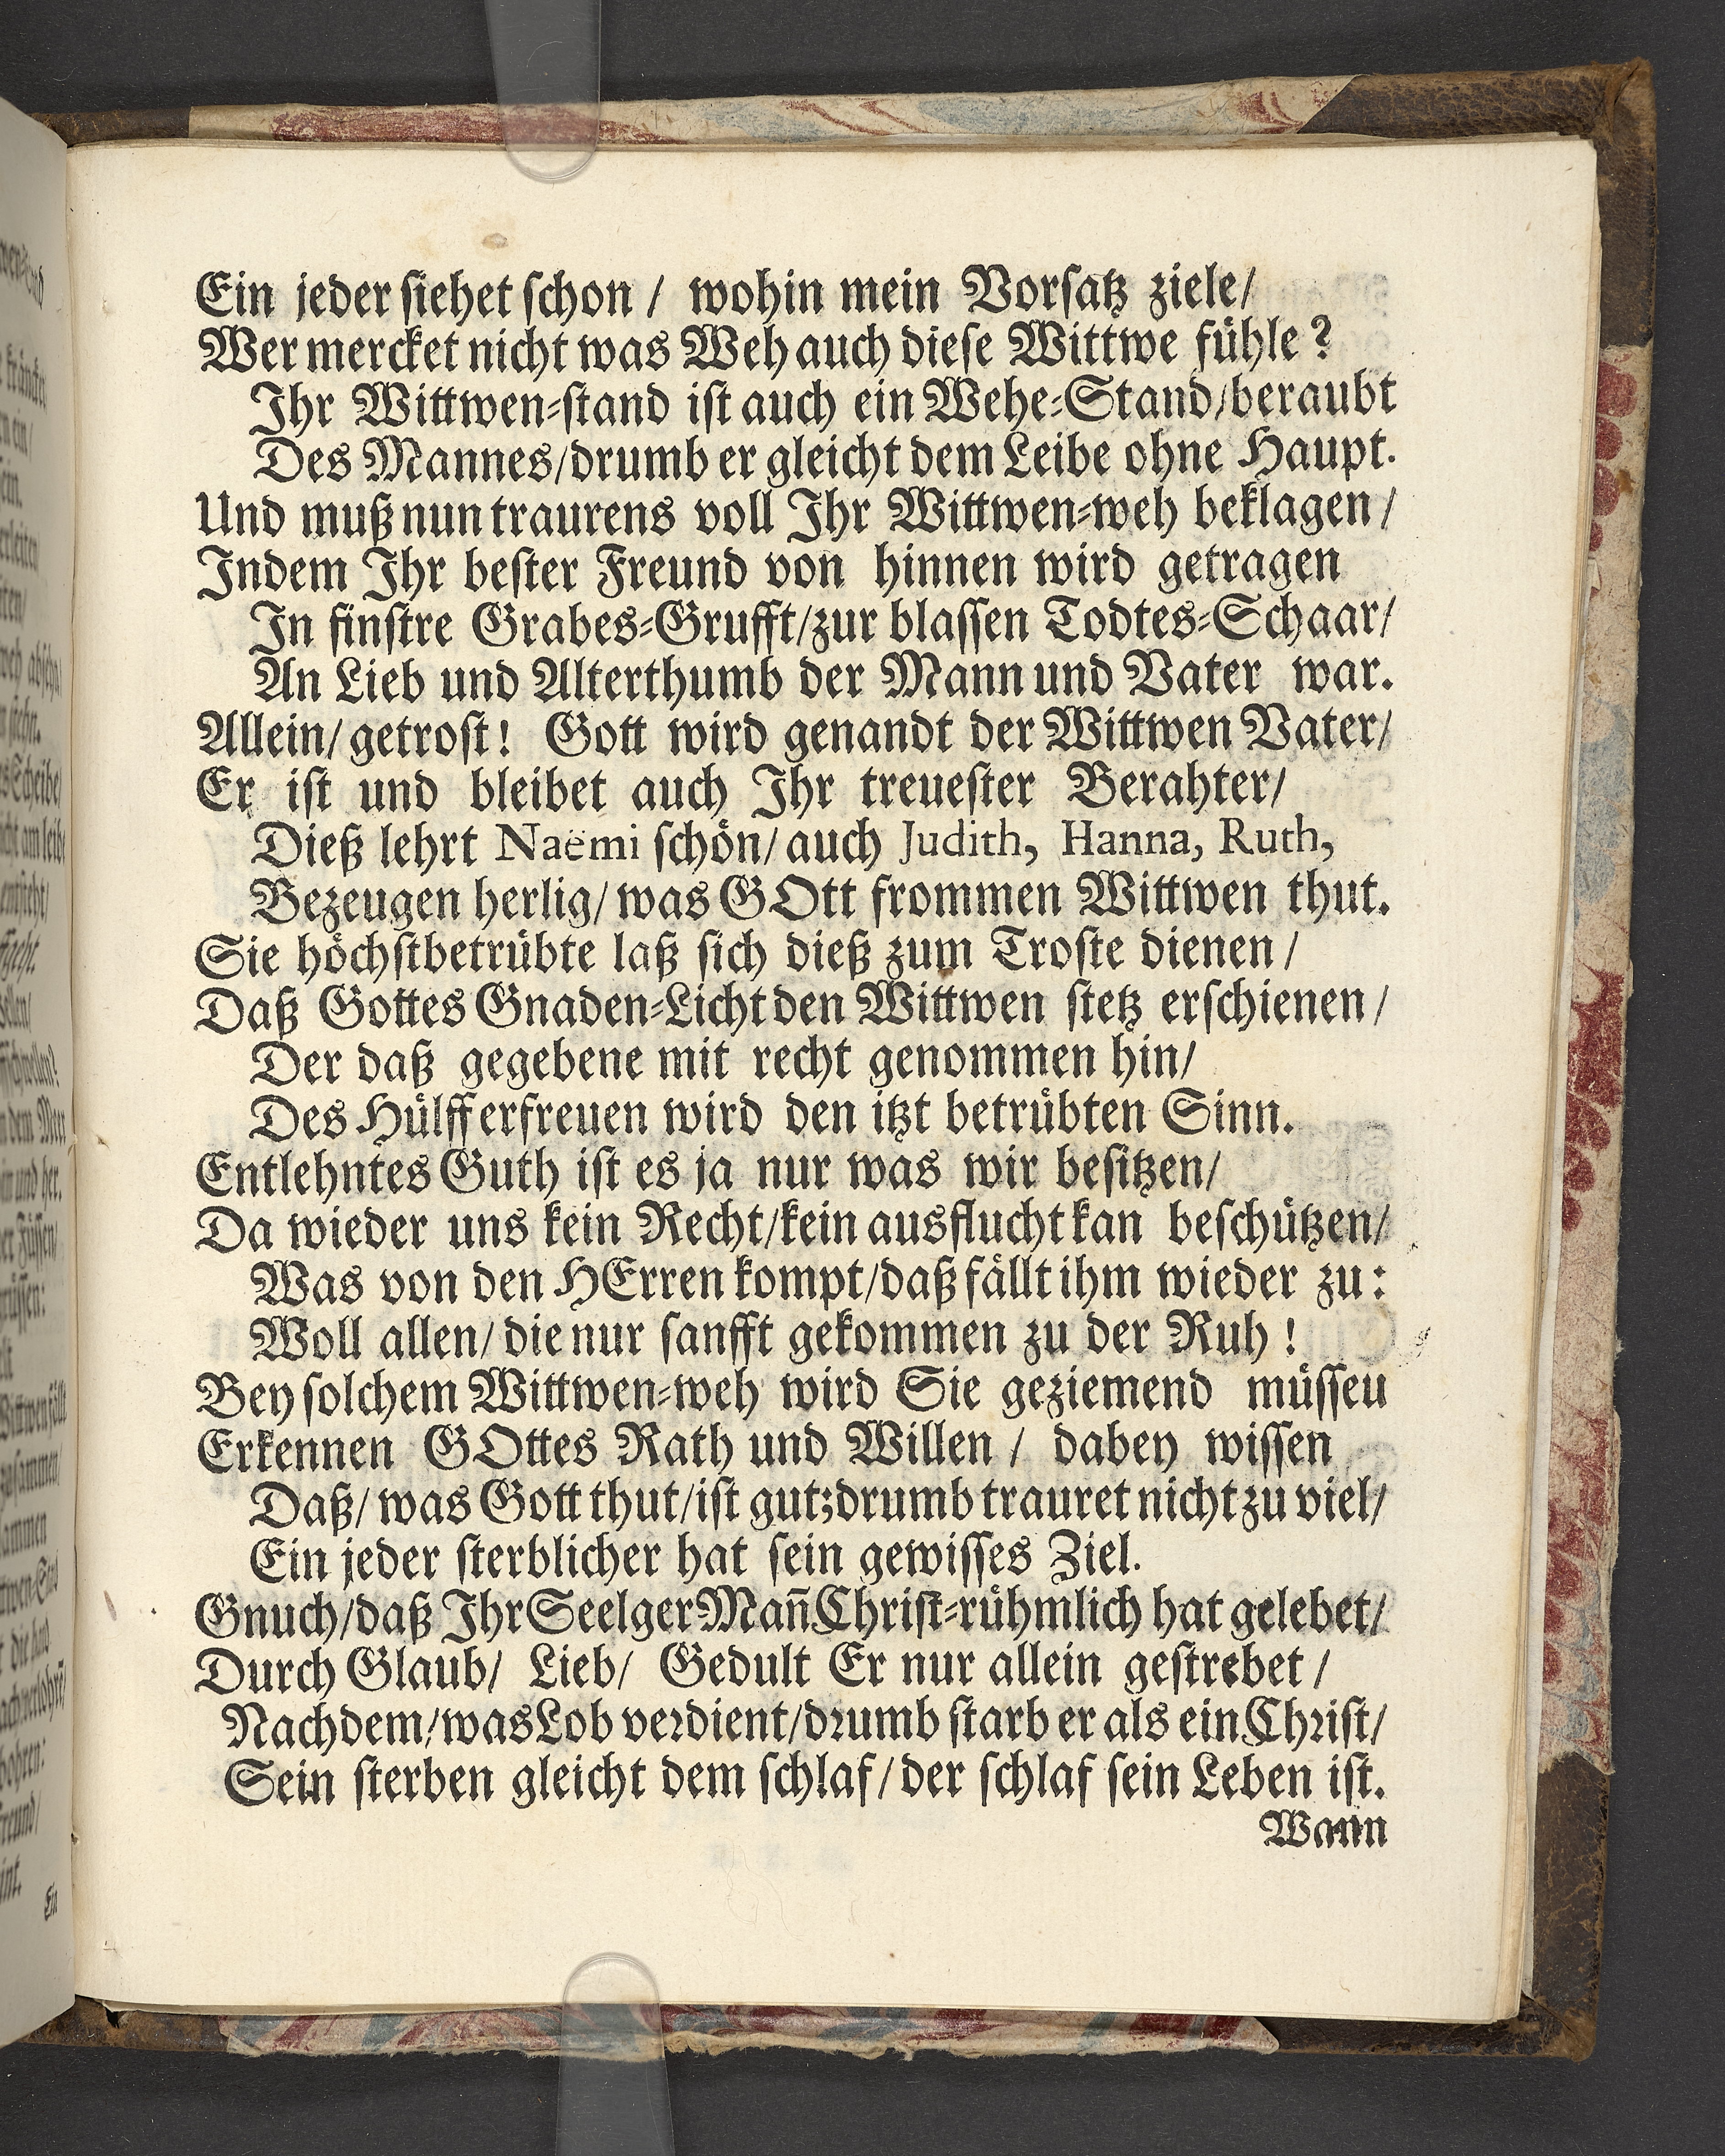 Ein jeder ſiehet ſchon / wohin mein Vorſatz ziele/
Wer mercket nicht was Weh auch dieſe Wittwe fühle?
Ihr Wittwen-ſtand iſt auch ein Wehe-Stand/beraubt
Des Mannes/drumb er gleicht dem Leibe ohne Haupt.
Und muß nun traurens voll Ihr Wittwen-weh beklagen /
Indem Ihr beſter Freund von hinnen wird getragen
In finſtre Grabes-Grufft/zur blaſſen Todtes-Schaar/
An Lieb und Alterthumb der Mann und Vater war.
Allein/ getroſt! Gott wird genandt der Wittwen Vater/
Er iſt und bleibet auch Ihr treueſter Berahter/
Dieß lehrt Naëmi ſchön/ auch Judith, Hanna, Ruth,
Bezeugen herlig/ was GOtt frommen Wittwen thut.
Sie höchſtbetrübte laß ſich dieß zum Troſte dienen /
Daß Gottes Gnaden-Licht den Wittwen ſtetz erſchienen /
Der daß gegebene mit recht genommen hin/
Des Hülff erfreuen wird den itzt betrübten Sinn.
Entlehntes Guth iſt es ja nur was wir beſitzen/
Da wieder uns kein Recht/kein ausflucht kan beſchützen/
Was von den HErren kompt/daß fällt ihm wieder zu:
Woll allen/ die nur ſanfft gekommen zu der Ruh!
Bey ſolchem Wittwen-weh wird Sie geziemend müſſeu
Erkennen GOttes Rath und Willen / dabey wiſſen
Daß/ was Gott thut/iſt gut;drumb trauret nicht zu viel/
Ein jeder ſterblicher hat ſein gewiſſes Ziel.
Gnuch/daß Ihr Seelger Mañ Chriſt-rühmlich hat gelebet/
Durch Glaub/ Lieb/ Gedult Er nur allein geſtrebet /
Nach dem/was Lob verdient/drumb ſtarb er als ein Chriſt/
Sein ſterben gleicht dem ſchlaf/ der ſchlaf ſein Leben iſt.
Wann